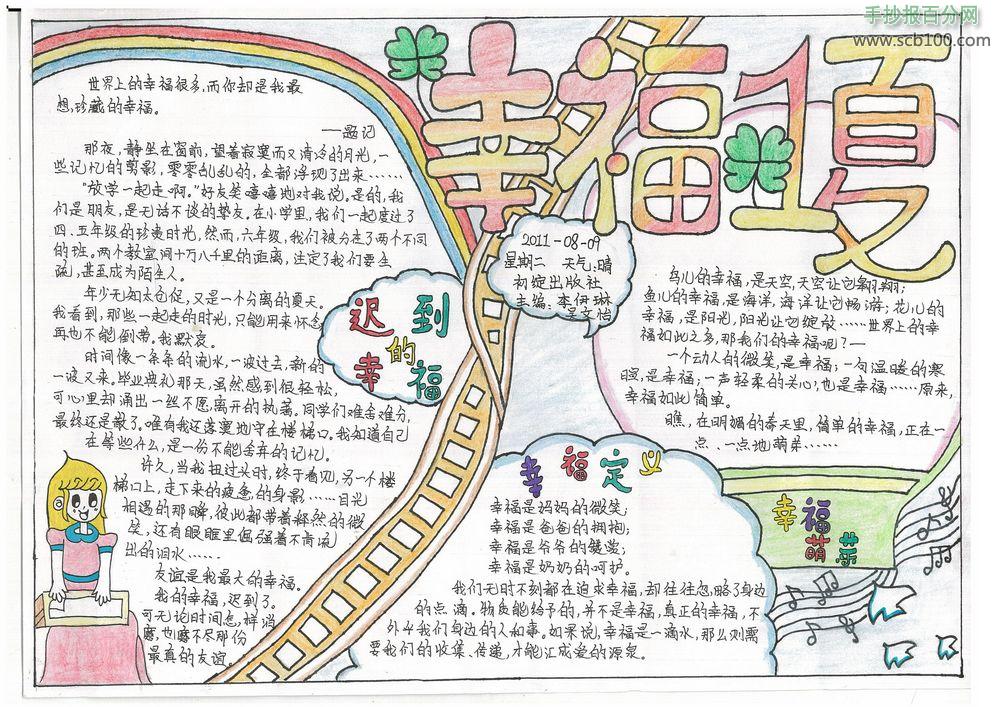 手抄报百分网
www.scb100.com
幸福1夏
世界上的幸福很多,而你却是我最
想,珍藏的幸福。
——题记
那夜,静坐在窗前,望着寂寞而又清冷的月光,一
些记忆的剪影,零零乱乱的,全都浮现了出来……
“放学一起走啊。”好友笑嘻嘻地对我说。是的,我
们是朋友,是无话不谈的挚友。在小学里,我们一起度过了
四、五年级的珍贵时光,然而,六年级,我们被分在了两个不同
的班。两个教室间十万八千里的距离,注定了我们要生
疏,甚至成为陌生人。
年少无知太仓促,又是一个分离的夏天。
我看到,那些一起走的时光,只能用来怀念,
再也不能倒带。我默哀。
时间像一条条的流水,一波过去,新的
一波又来。毕业典礼那天,虽然感到很轻松,
可心里却涌出一丝不愿离开的执著。同学们难舍难分,
最终还是散了。唯有我还落寞地守在楼梯口。我知道自己
在等些什么,是一份不能舍弃的记忆。
许久,当我扭过头时,终于看见,另一个楼
梯口上,走下来的疲惫的身影……目光
相遇的那瞬,彼此都带着释然的微
笑,还有眼眶里倔强着不肯流
出的泪水……
友谊是我最大的幸福。
我的幸福,迟到了。
可无论时间怎样消
磨,也磨不尽那份
最真的友谊。
迟到
的
幸福
2011-08-09
星期二 天气:晴
初绽出版社
主编:李伊琳
吴文怡
鸟儿的幸福,是天空,天空让它翱翔;
鱼儿的幸福,是海洋,海洋让它畅游;花儿的
幸福,是阳光,阳光让它绽放……世界上的幸
福如此之多,那我们的幸福呢?—
一个动人的微笑,是幸福;一句温暖的寒
暄,是幸福;一声轻柔的关心,也是幸福……原来,
幸福如此简单。
瞧,在明媚的春天里,简单的幸福,正在一
点一点地萌芽……
幸福
萌芽
幸福定义
幸福是妈妈的微笑;
幸福是爸爸的拥抱;
幸福是爷爷的
幸福是奶奶的呵护。
我们无时不刻都在追求幸福,却往往忽略了身边
的点滴。物质能给予的,并不是幸福,真正的幸福,不
外乎我们身边的人和事。如果说,幸福是一滴水,那么则需
要我们的收集、传递,才能汇成爱的源泉。